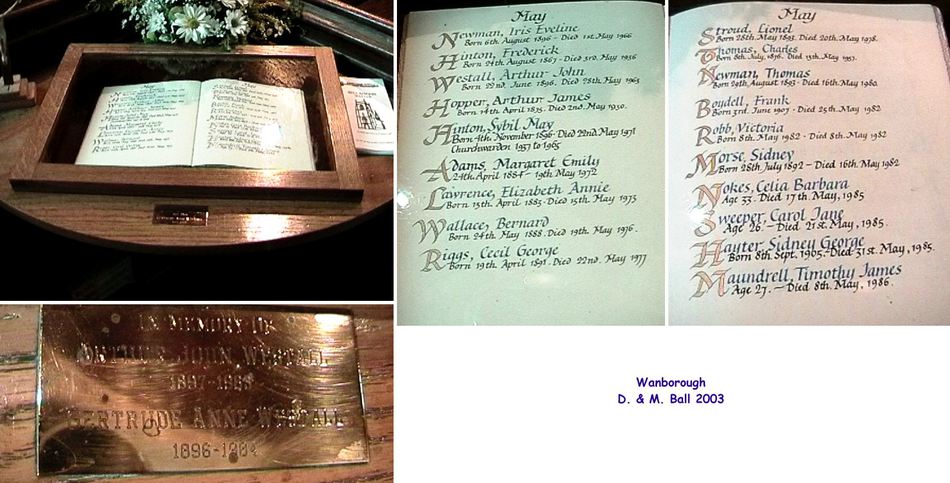 May
Newman, Iris Eveline
Born 6th. August 1896 - Died 1st. May 1966
Hinton, Frederick
Born 24th. August 1867 - Died 3rd. May 1956
Westall, Arthur John
Born 22nd. June 1896. Died 28th. May 1963
Hopper, Arthur James
Born 14th. April 1875. Died 2nd. May 1950.
Hinton, Sybil May
Born 4th. November 1896. Died 22nd. May 1971
Churchwarden 1937 to 1965
Adams, Margaret Emily
24th. April 1884 - 19th. May 1972
Lawrence, Elizabeth Annie
Born 13th. April 1883. Died 15th. May 1975
Wallace, Bernard
Born 24th. May 1888. Died 19th. May 1976.
Riggs, Cecil George
Born 19th. April 1891. Died 22nd. May 1977
May
Stroud, Lionel
Born 28th. May 1893. Died 20th. May 1978.
Thomas, Charles
Born 8th. July, 1876. Died 13th. May 1957.
Newman, Thomas
Born 29th. August 1893 - Died 16th. May 1980.
Boydell, Frank
Born 3rd. June 1907 - Died 25th. May 1982
Robb, Victoria
Born 8th. May 1982 - Died 8th. May 1982
Morse, Sidney
Born 28th. July 1892 - Died 16th. May 1982
Nokes, Celia Barbara
Age 33. Died 17th. May, 1985
Sweeper, Carol Jane
Age 26 - Died 21st. May, 1985.
Hayter, Sidney George
Born 8th. Sept. 1905. Died 31st. May, 1985.
Maundrell, Timothy James
Age 27. - Died 8th. May, 1986.
IN MEMORY OF
ARTHUR JOHN WESTALL
GERTRUDE ANNE WESTALL
1896-1984
Wanborough
D. & M. Ball 2003